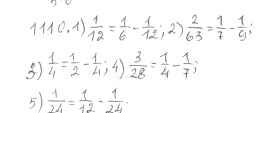 1110. 1) 1/12 = 1/6 - 1/12; 2) 2/63 = 1/7 - 1/9;
3) 1/4 = 1/2 - 1/4; 4) 3/28 = 1/4 - 1/7;
5) 1/24 = 1/12 - 1/24.